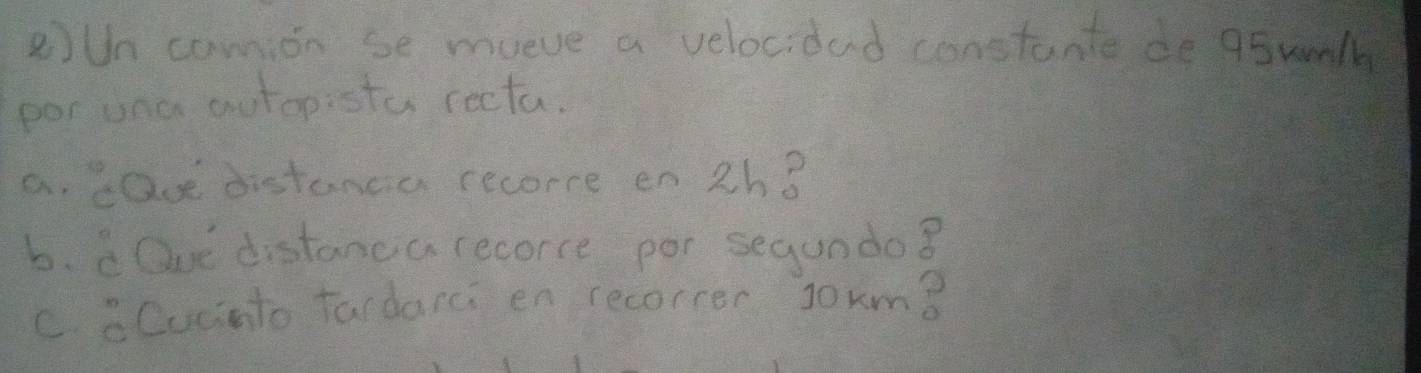 2) Un camión se mueve a velocidad constante de 95km/h
por una autopista recta.
a. ¿Qué distancia recorre en 2h?
b. ¿Qué distancia recorre por segundo?
c. ¿Cuánto tardará en recorrer 10km?